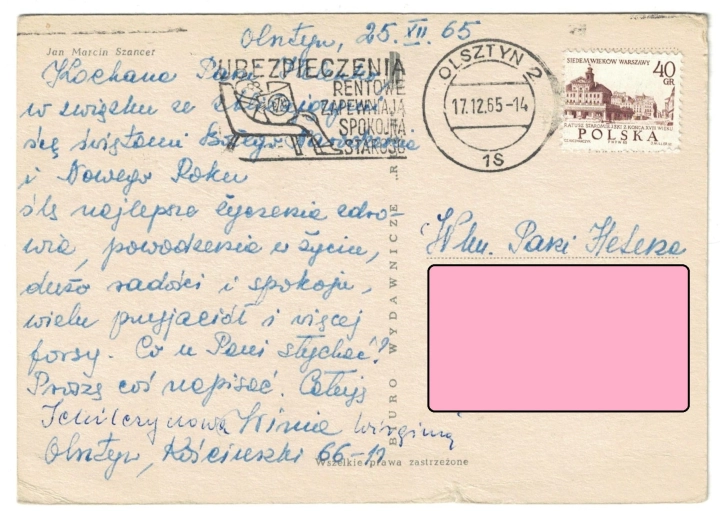 Jan Marcin Szancer
Olsztyn, 25.XII.65
Kochana Pani
w związku ze
się świętami Bożego
i Nowego Roku
ślę najlepsze życzenia zdro-
wia, powodzenia w życiu,
dużo radości i spokoju,
wielu przyjaciół i więcej
forsy. Co u Pani słychać?
Proszę coś napisać. Całuję
Wiśnia
Olsztyn, Kościuszki 66-12
UBEZPIECZENIA
RENTOWE
ZAPEWNIAJĄ
SPOKOJNĄ
STAROŚĆ
OLSZTYN 2
17.12.65-14
1S
SIEDEM WIEKÓW WARSZAWY
40
GR
RATUSZ STAROMIEJSKI Z KOŃCA XVIII WIEKU
POLSKA
BIURO WYDAWNICZE „R
Wszelkie prawa zastrzeżone
Wlm. Pani Helena